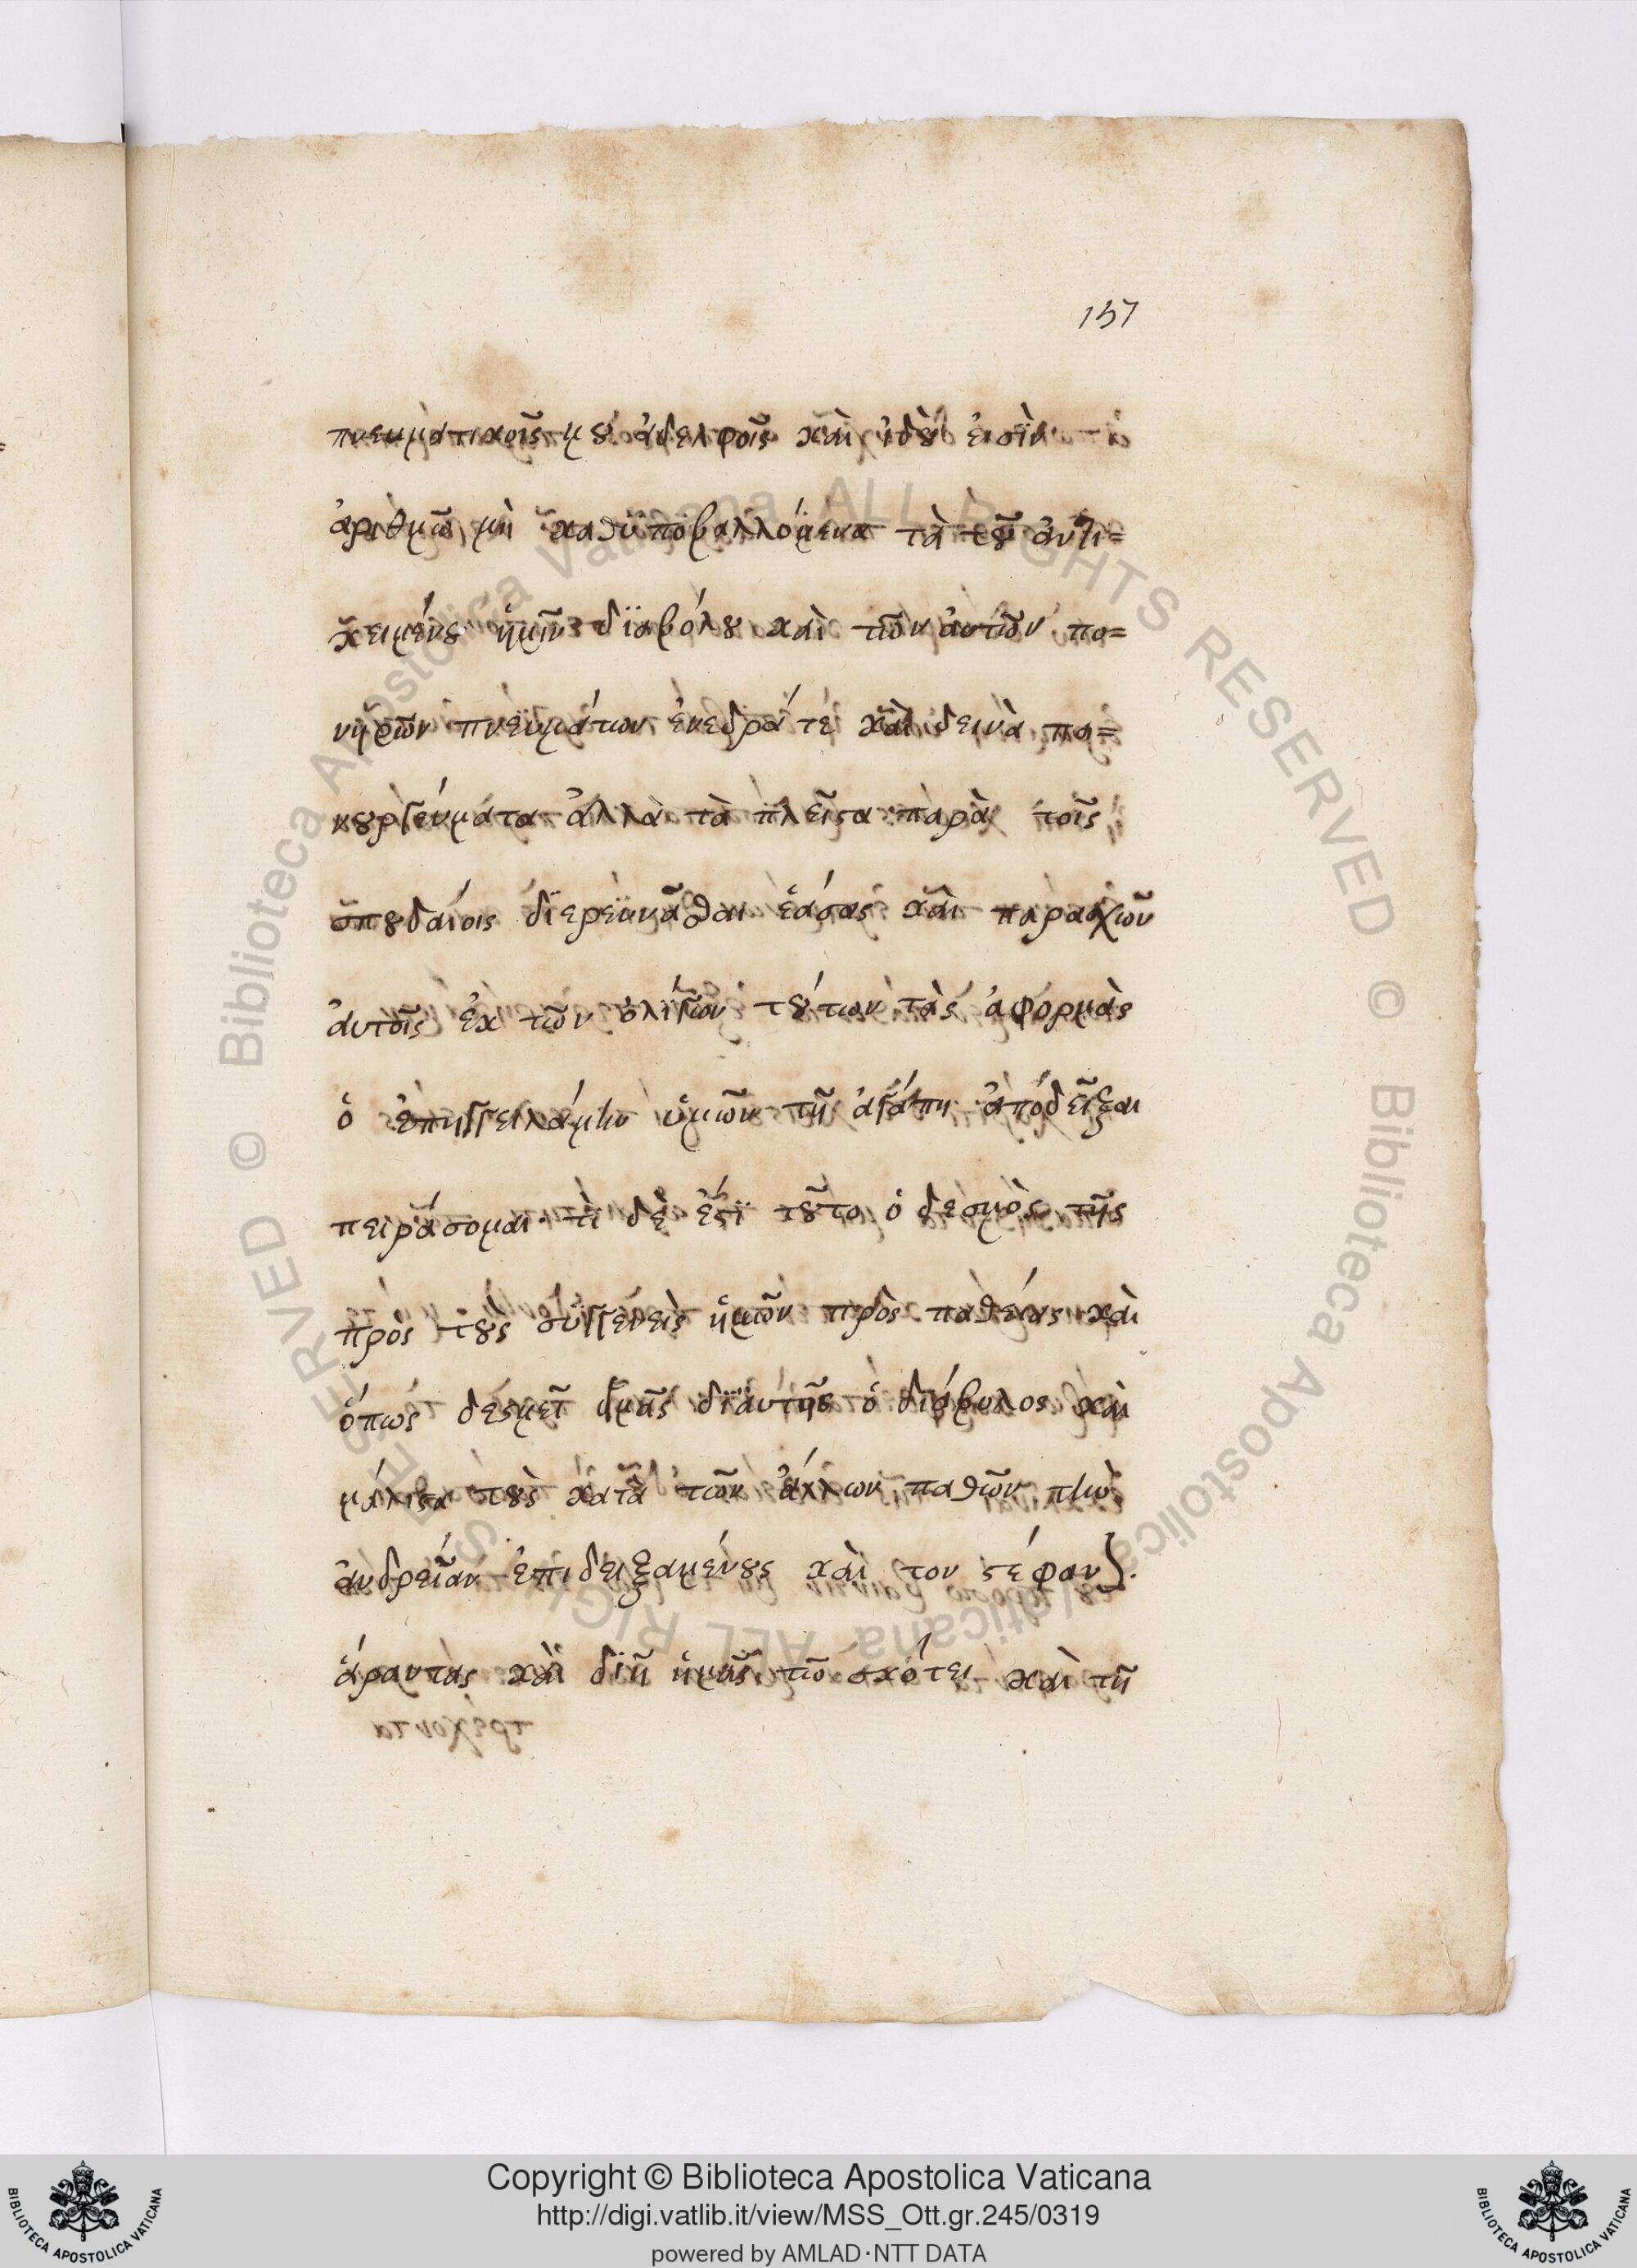 157
πνευματικοῖς μου ἀδελφοῖς καὶ ἰδοὺ εἰσὶν
ἀριθμῶ μὴ καθυποβαλλόμενα τὰ τοῦ ἀντι=
κειμένου ἡμῖν διαβόλου καὶ τῶν αὐτῶν πο=
νηρῶν πνευμάτων ἔνεδρά τε καὶ δεινὰ πα=
νουργεύματα ἀλλὰ τὰ πλεῖστα παρὰ τοῖς
σπουδαίοις διερευνᾶσθαι ἐάσας καὶ παρασχὼν
αὐτοῖς ἐκ τῶν ὀλίγων τούτων τὰς ἀφορμὰς
ὁ ἐπηγγειλάμην ὑμῶν τῇ ἀγάπη ἀποδεῖξαι
πειράσομαι τὶ δέ ἐστι τοῦτο ὁ δεσμὸς τῆς
πρὸς τοὺς συγγενεῖς ἡμῶν προσπαθείας καὶ
ὅπως δεσμεῖ ἡμᾶς δι αὐτῆς ὁ διάβολος καὶ
μάλιστα τοὺς κατὰ τῶν ἄλλων παθῶν τὴν
ἀνδρείαν ἐπιδειξαμένους καὶ τον στέφανον
ἄραντας καὶ ἡμᾶς τῶ σκότει καὶ τῆ
Copyright © Biblioteca Apostolica Vaticana
http://digi.vatlib.it/view/MSS_Ott.gr.245/0319
powered by AMLAD·NTT DATA
BIBLIOTECA APOSTOLICA VATICANA
BIBLIOTECA APOSTOLICA VATICANA
© Biblioteca Apostolica Vaticana ALL RIGHTS RESERVED
© Biblioteca Apostolica Vaticana ALL RIGHTS RESERVED